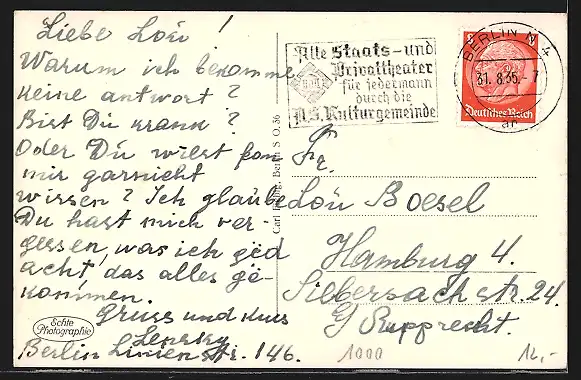 Liebe Loú!
Warum ich bekomme
keine antwort?
Bist Dú krank?
Oder Dú willst fon
mir garnicht
wissen? Ich glaúbe
Dú hast mich ver-
gessen, was ich ged
acht, das alles ge-
kommen.
Gruss und kuss
Lensky
Berlin Linien str. 146.
Echte
Photographie
Alle Staats- und
Privattheater
für jedermann
durch die
N.S. Kulturgemeinde
BERLIN N 4
31.8.35.-7
an
Deutsches Reich
Berlin S.O. 36
Fr.
Loú Boesel
Hamburg 4.
Silbersach str. 24.
b/ Rupprecht.
1000
12,-